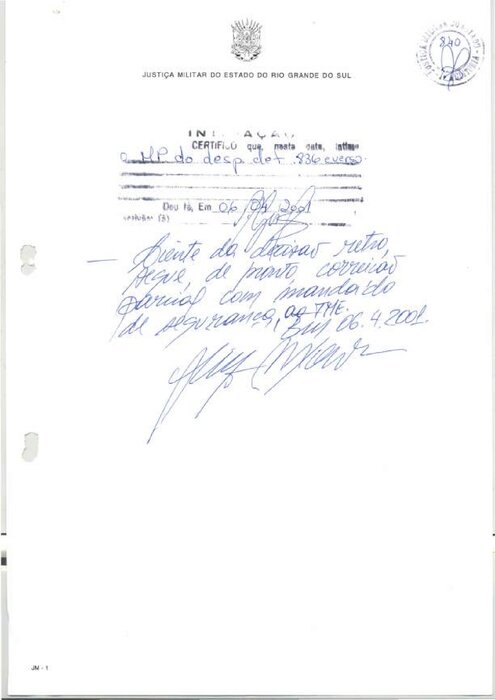 840
JUSTIÇA MILITAR DO ESTADO DO RIO GRANDE DO SUL
INTIMAÇÃO
CERTIFICO que, nesta data, intimei
o MP do desp. de f. 836 e verso.
Dou fé, Em 06 04 2001
Escrivão (ã)
— Ciente da decisão retro,
segue, de pronto correição
parcial com mandado
de segurança, ao TME.
06.4.2001.
JM - 1